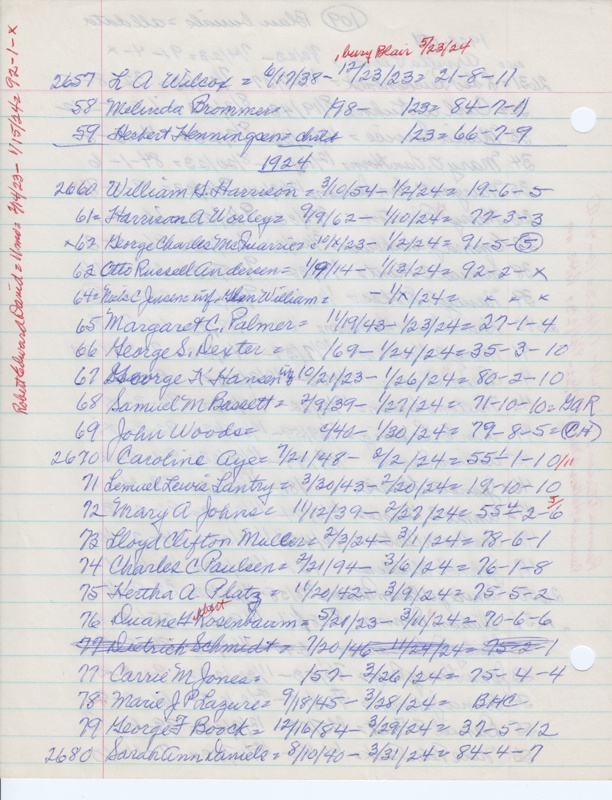 , bury Blair 5/23/24
2657 L A Wilcox = 6/17/38 - 12/23/23 = 21-8-11
58 Melinda Brommer = /98 - /23 = 84-7-11
59 Herbert Henningsen = /23 = 66-7-9
1924
2660 William G. Harrison = 3/10/54 - 1/2/24 = 19-6-5
61 = Harrison A Worley = 9/9/62 - 1/10/24 = 77-3-3
x62 George Charles McQuarrie = 10/x/23 - 1/2/24 = 91-5-5
63 Otto Russell Andersen = 1/9/14 - 1/13/24 = 92-2-x
64 = Niels C Jensens inf. Glen William = - 1/x/24 = x x x
65 Margaret C. Palmer = 11/19/43 - 1/23/24 = 27-1-4
66 George S. Dexter = /69 - 1/24/24 = 35-3-10
67 George K Hansen 10/21/23 - 1/26/24 = 80-2-10
68 Samuel M Bassett = 2/9/39 - 1/27/24 = 71-10-10 = GAR
69 John Woods = /40 - 1/30/24 = 79-8-5 = (CH)
2670 Caroline Aye = 7/21/48 - 2/2/24 = 55-1-10/11
71 Lemuel Lewis Lantry = 3/30/43 - 2/20/24 = 19-10-10
72 Mary A Johns = 11/12/39 - 2/27/24 = 55-2-6 5/
73 Lloyd Clifton Muller = 2/3/24 - 3/1/24 = 78-6-1
74 Charles C Paulsen = 2/21/94 - 3/6/24 = 76-1-8
75 Hertha A Platz = 11/20/42 - 3/9/24 = 75-5-2
76 Duane Rosenbaum = 5/20/23 - 3/10/24 = 70-6-6
77 Dietrich Schmidt = 7/20/46 - 11/24/24 = 75-2-1
77 Carrie M Jones = /57 - 3/26/24 = 75-4-4
78 Marie J P Lazure = 9/18/45 - 3/28/24 = BHC
79 George F Boock = 12/16/84 - 3/29/24 = 37-5-12
2680 Sarah Ann Daniels = 8/10/40 - 3/31/24 = 84-4-7
Robert Edward David = 11 mos = 2/14/23 - 1/15/24 = 92-1-x